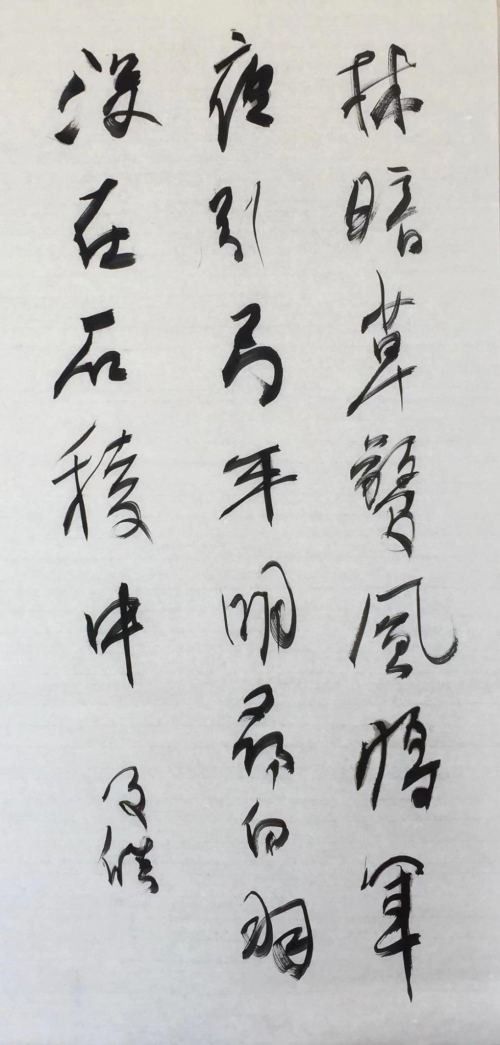 林暗草驚風將軍
夜引弓平明尋白羽
没在石稜中